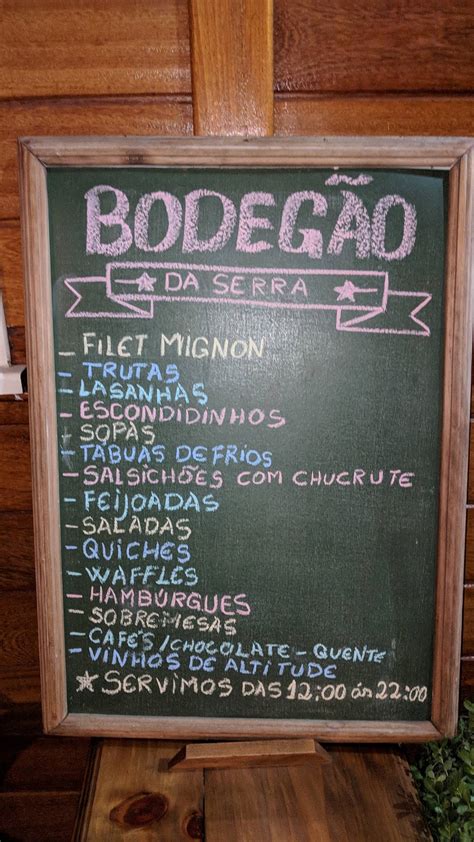 BODEGÃO
★ DA SERRA ★
- FILET MIGNON
- TRUTAS
- LASANHAS
- ESCONDIDINHOS
- SOPAS
- TÁBUAS DE FRIOS
- SALSICHÕES COM CHUCRUTE
- FEIJOADAS
- SALADAS
- QUICHES
- WAFFLES
- HAMBÚRGUES
- SOBREMESAS
- CAFÉS/CHOCOLATE-QUENTE
- VINHOS DE ALTITUDE
★ SERVIMOS DAS 12:00 ÁS 22:00